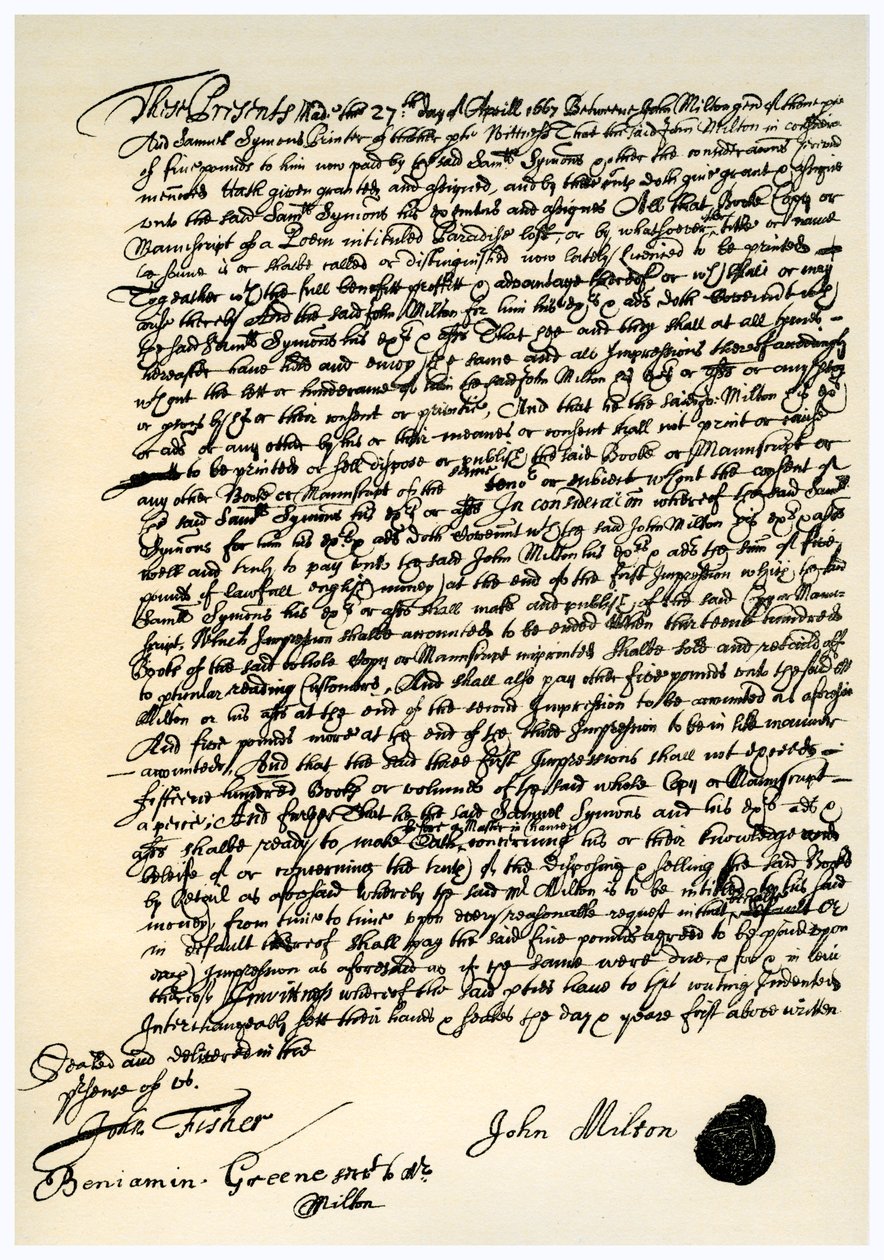 These Presents Made the 27th day of Aprill 1667 Betweene John Milton gent of thone ptie
And Samuel Symons Printer of thother ptie Wittness That the said John Milton in consideracon
of five pounds to him now paid by the said Samll Symons & other the consideracons
menconed Hath given granted and assigned, and by these pnts doth give grant & assigne
unto the said Samll Symons his executors and assignes All that Booke Copy or
Manuscript of a Poem intituled Paradise lost, or by whatsoever other title or name
the same is or shalbe called or distinguished now lately Licensed to be printed
Together wth the full benefitt proffitt & advantage thereof or wch shall or may
arise thereby And the said John Milton for him his exrs & ads doth covenant wth
the said Samll Symons his exrs & assns That hee and they shall at all tymes
hereafter have hold and enjoy the same and all Impressions thereof accordingly
wthout the lett or hinderance of him the said John Milton his exrs or assns or any pson
or psons by his or their consent or privitie. And that he the said Jo: Milton his exrs
or ads or any other by his or their meanes or consent shall not print or cause
to be printed or sell dispose or publish the said Booke or Manuscript or
any other Booke or Manuscript of the same tenor or subject wthout the consent of
the said Samll Symons his exrs or assns In consideracon whereof the said Samll
Symons for him his exrs & ads doth covenant wth the said John Milton his exrs & assns
well and truly to pay unto the said John Milton his exrs & ads the sum of five
pounds of lawfull english money at the end of the first Impression which the said
Samll Symons his exrs or assns shall make and publish of the said Copy or Manu-
script. Which Impression shalbe accounted to be ended when thirteene hundred
Books of the said whole Copy or Manuscript imprinted shalbe sold and retaild off
to pticular reading Customers. And shall also pay other five pounds unto the said Mr
Milton or his assns at the end of the second Impression to be accounted as aforesaid
And five pounds more at the end of the third Impression to be in like manner
accounted. And that the said three first Impressions shall not exceed
fifteene hundred Books or volumes of the said whole Copy or Manuscript
a peice. And further That he the said Samuel Symons and his exrs ads &
assns shalbe ready to make Oath before a Master in Chancery concerning his or their knowledge and
beleife of or concerning the truth of the disposing & selling the said Books
by Retail as aforesaid whereby the said Mr Milton is to be intitled to his said
money from time to time upon every reasonable request in that behalfe or
in default thereof shall pay the said five pounds agreed to be paid upon
each Impression as aforesaid as if the same were due & for & in lieu
thereof In wittness whereof the said pties have to this writing Indented
Interchangeably sett their hands & seales the day & yeare first above written
Sealed and delivered in the
presence of us.
John Fisher
John Milton
Beniamin Greene servt to Mr
Milton